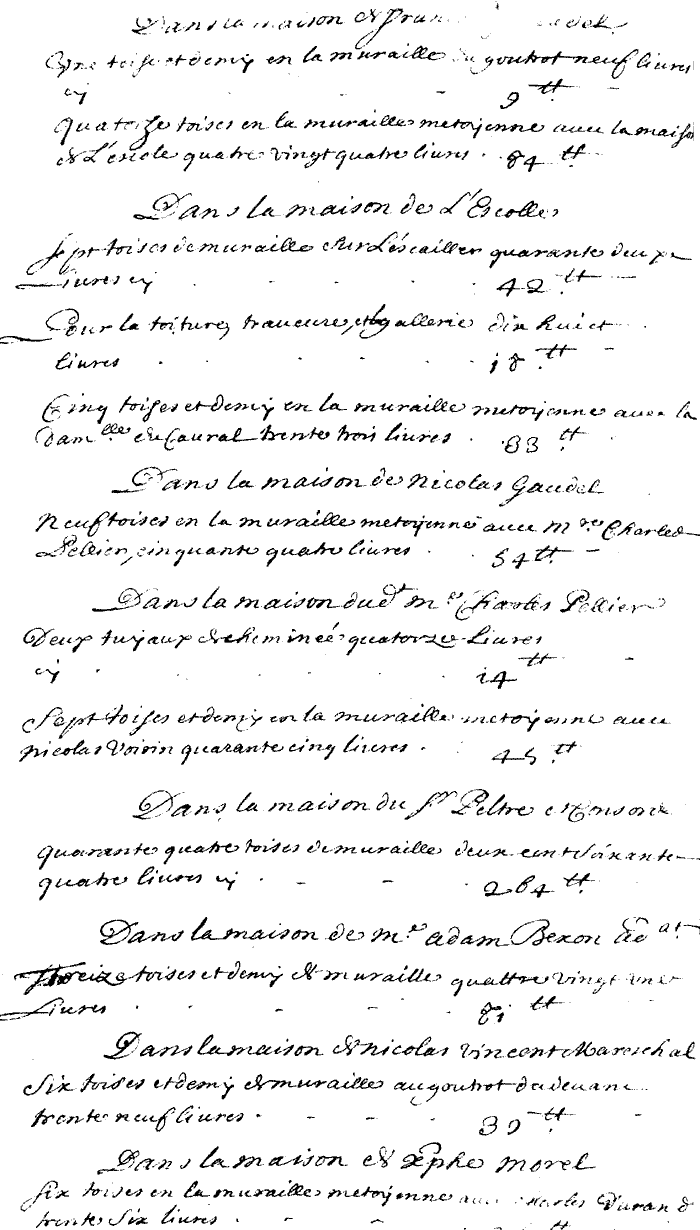 Dans la maison de Fran
Une toise et demy en la muraille du goutrot neuf livres
cy 9 tt
Quatorze toises en la muraille metoyenne avec la maison
de L'escole quatre vingt quatre livres . 84 tt
Dans la maison de L'Escolle
Sept toises de muraille sur L'escaillier quarante deux
Livres cy 42 tt
Pour la toiture, traveure, et gallerie dix huict
livres 18 tt
Cinq toises et demy en la muraille metoyenne avec la
dam.lle du Caural trente trois livres . 33 tt
Dans la maison de Nicolas Gaudel
Neuf toises en la muraille metoyenne avec M.re Charles
Pellier, cinquante quatre livres 54 tt
Dans la maison dud.t m.e Charles Pellier
Deux tuyaux de cheminée quatorze Livres
cy 14 tt
Sept toises et demy en la muraille metoyenne avec
nicolas voirin quarante cinq livres . 45 tt
Dans la maison du Sr Peltre
quarante quatre toises de muraille deux cent soixante
quatre livres cy 264 tt
Dans la maison de m.e adam Bexon
Treize toises et demy de muraille quattre vingt une
Livres 81 tt
Dans la maison de nicolas vincent Mareschal
Six toises et demy de muraille au goutrot du devant
trente neuf livres . 39 tt
Dans la maison de Xphe morel
Six toises en la muraille metoyenne avec Charles Durand
trente Six livres .